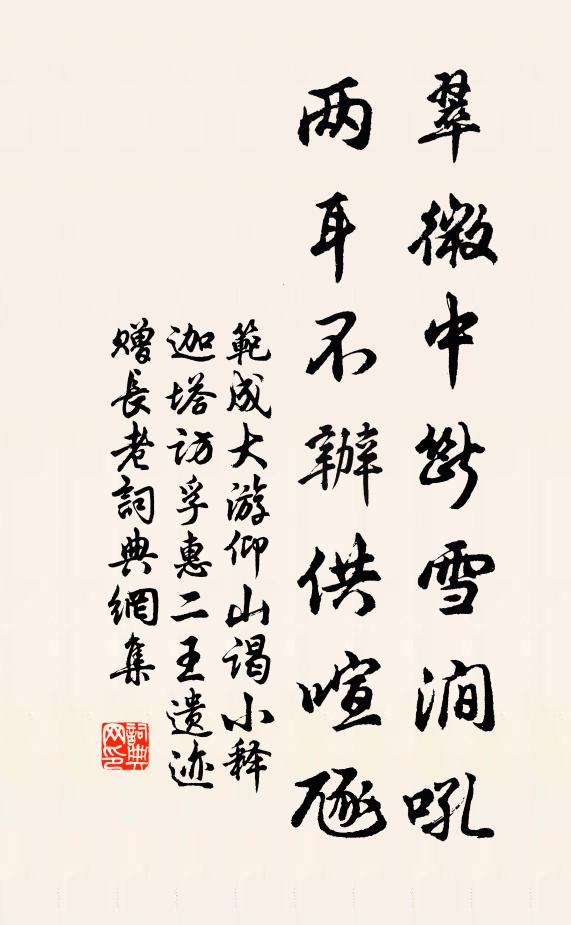 翠微中斷雪澗吼
两耳不辦供喧豗
範成大游仰山谒小释
迦塔访孚惠二王遗迹
赠長老詞典網集
詞典网印